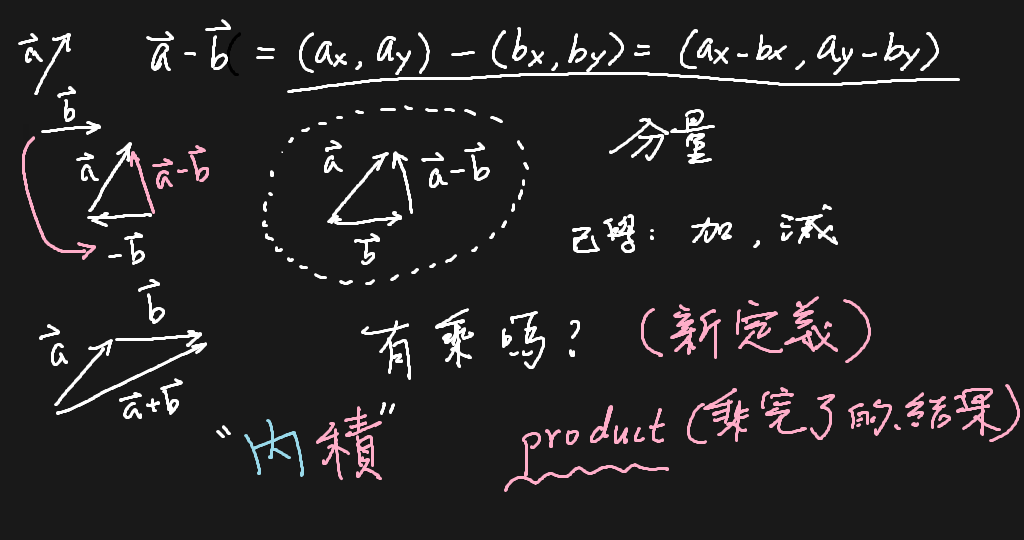 a⃗ a⃗ - b⃗ ( = (ax, ay) - (bx, by) = (ax - bx, ay - by)
b⃗
a⃗ a⃗ - b⃗
-b⃗
a⃗ a⃗ - b⃗
b⃗
分量
已學: 加, 減
b⃗
a⃗
a⃗ + b⃗
有乘嗎? (新定義)
"內積" product (乘完了的結果)